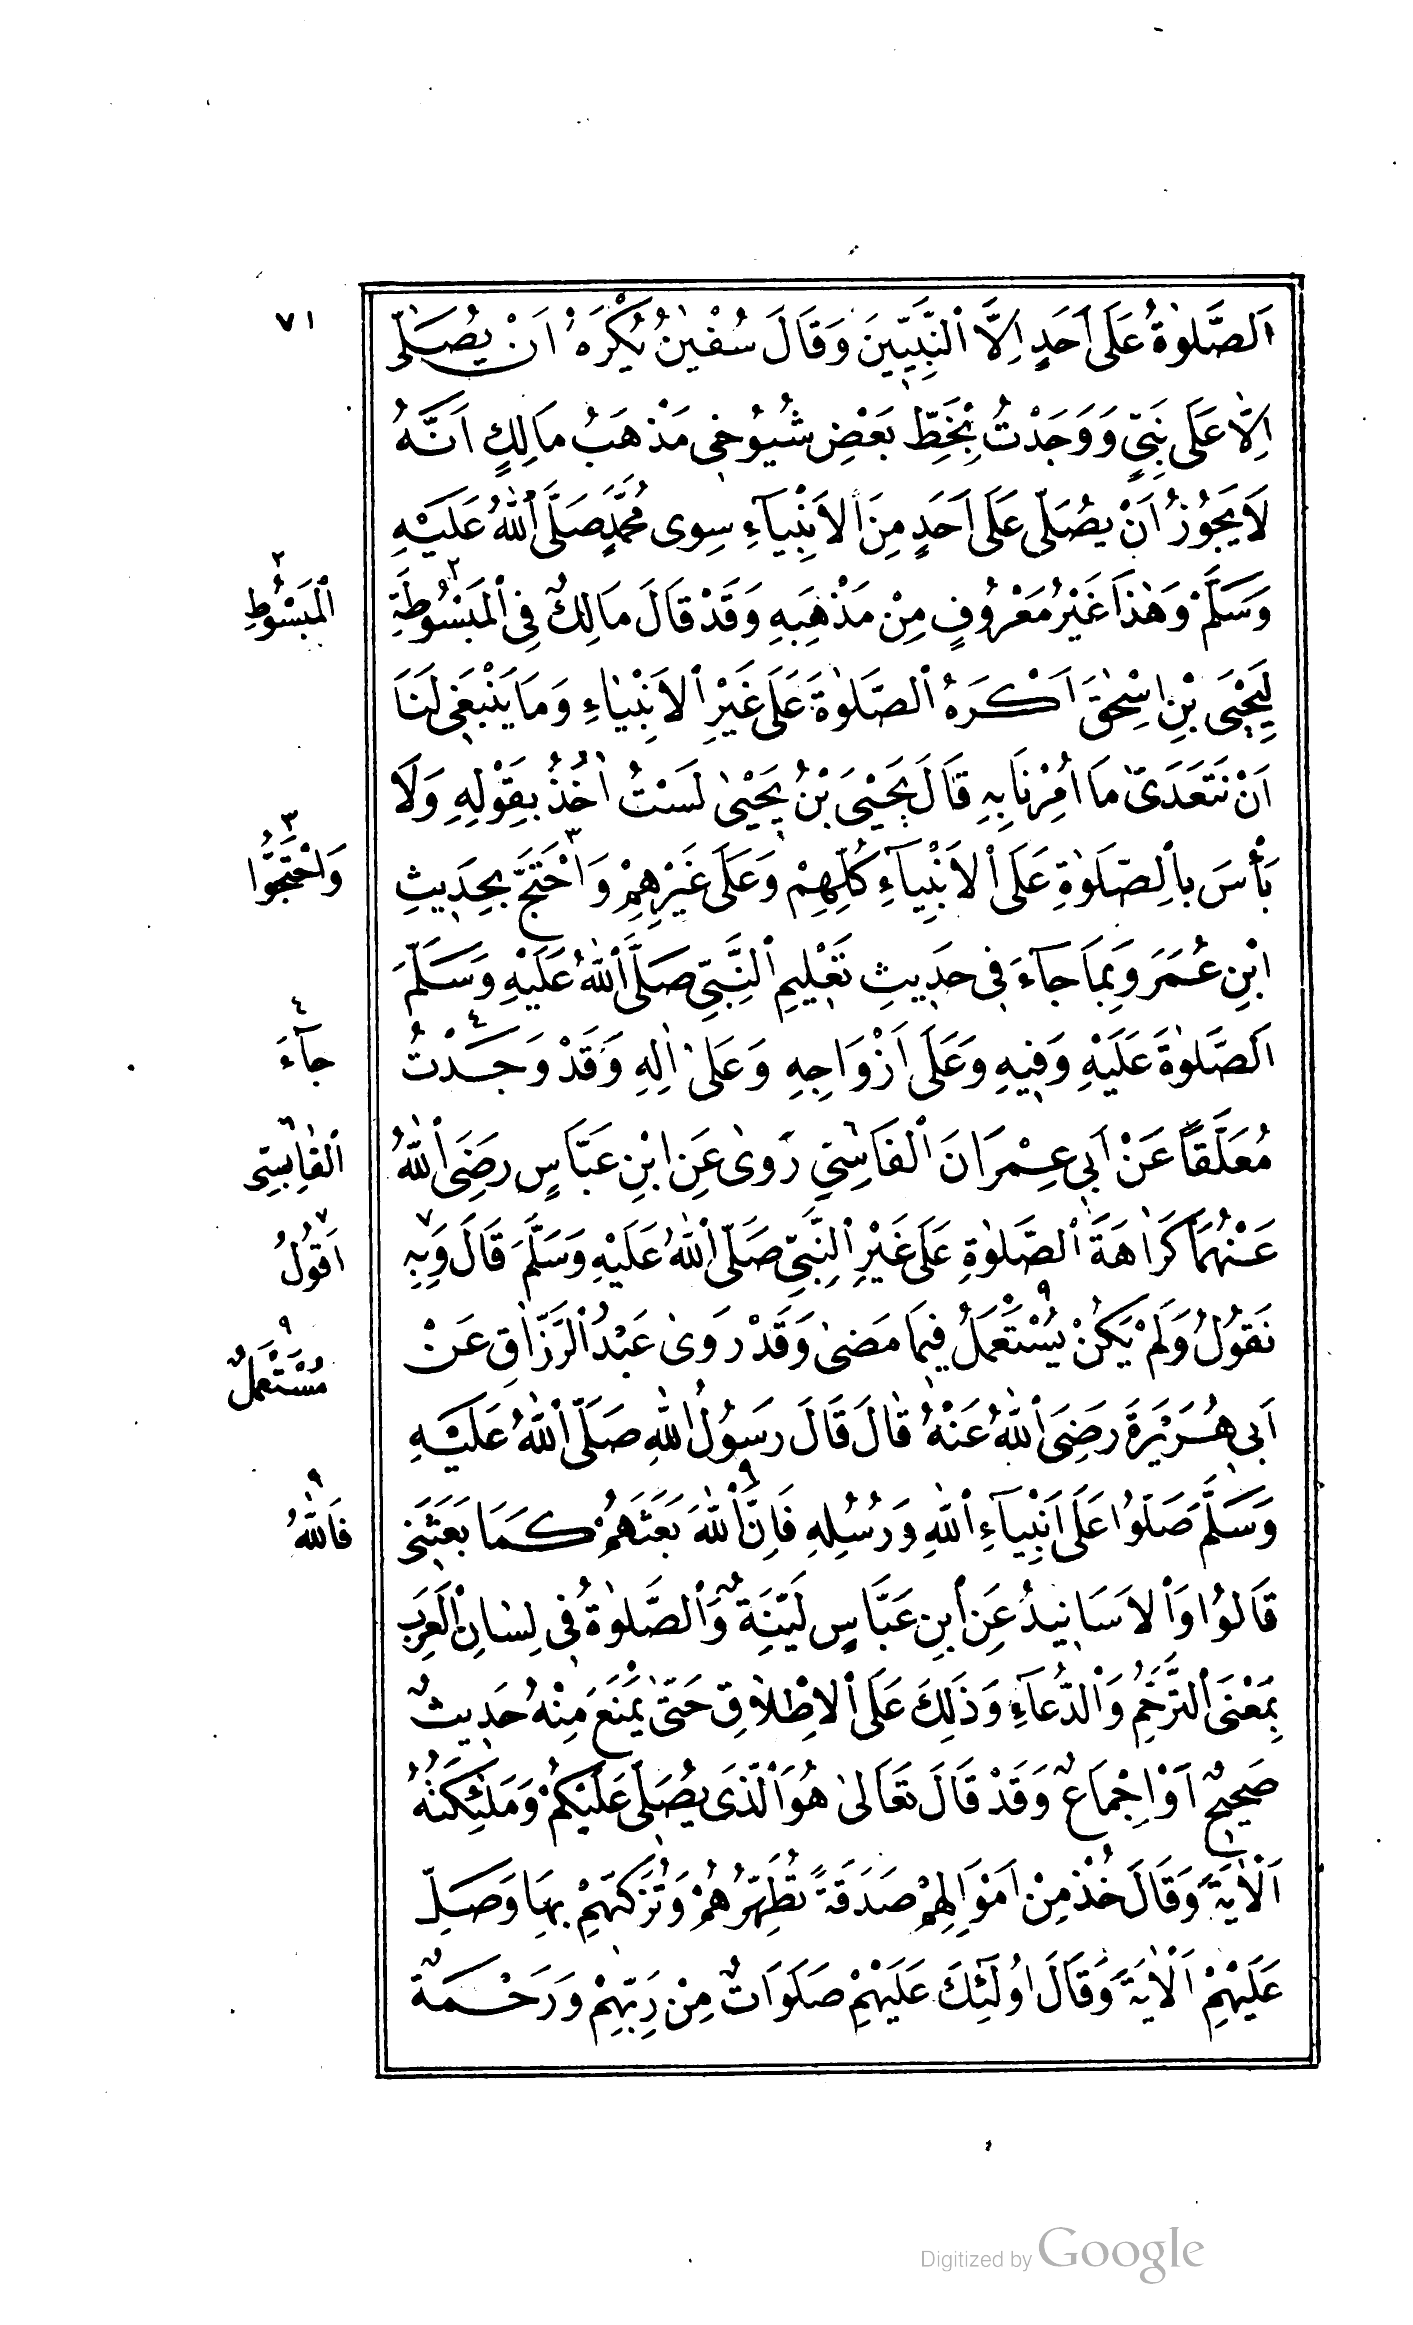 ٧١
اَلصَّلٰوةُ عَلَى اَحَدٍ اِلَّا النَّبِيِّينَ وَقَالَ سُفْيٰنُ يُكْرَهُ اَنْ يُصَلّٰى
اِلَّا عَلَى نَبِيٍّ وَوَجَدْتُ بِخَطِّ بَعْضِ شُيُوخِى مَذْهَبُ مَالِكٍ اَنَّهُ
لَا يَجُوزُ اَنْ يُصَلّٰى عَلَى اَحَدٍ مِنَ الْاَنْبِيَآءِ سِوٰى مُحَمَّدٍ صَلَّى اللّٰهُ عَلَيْهِ
وَسَلَّمَ وَهٰذَا غَيْرُ مَعْرُوفٍ مِنْ مَذْهَبِهِ وَقَدْ قَالَ مَالِكٌ فِى الْمَبْسُوطَةِ ٢
٢ الْمَبْسُوطِ
لِيَحْيَى بْنِ اِسْحٰقَ اَكْرَهُ الصَّلٰوةَ عَلَى غَيْرِ الْاَنْبِيَاءِ وَمَا يَنْبَغِى لَنَا
اَنْ نَتَعَدّٰى مَا اُمِرْنَا بِهِ قَالَ يَحْيَى بْنُ يَحْيٰى لَسْتُ اٰخُذُ بِقَوْلِهِ وَلَا
بَأْسَ بِالصَّلٰوةِ عَلَى الْاَنْبِيَآءِ كُلِّهِمْ وَعَلَى غَيْرِهِمْ وَاحْتَجَّ ٣ بِحَدِيثِ
٣ وَاحْتَجُّوا
ابْنِ عُمَرَ وَبِمَا جَآءَ فِى حَدِيثِ تَعْلِيمِ النَّبِىِّ صَلَّى اللّٰهُ عَلَيْهِ وَسَلَّمَ
اَلصَّلٰوةَ عَلَيْهِ وَفِيهِ وَعَلَى اَزْوَاجِهِ وَعَلٰى اٰلِهِ وَقَدْ وَجَدْتُ ٤
٤ جَآءَ
مُعَلَّقًا عَنْ اَبِى عِمْرَانَ الْفَاسِىِّ ٦ رَوٰى عَنِ ابْنِ عَبَّاسٍ رَضِىَ اللّٰهُ
٦ الْقَابِسِىِّ
عَنْهُمَا كَرَاهَةَ الصَّلٰوةِ عَلَى غَيْرِ النَّبِىِّ صَلَّى اللّٰهُ عَلَيْهِ وَسَلَّمَ قَالَ وَبِهِ ٧
٧ اَقُولُ
نَقُولُ وَلَمْ يَكُنْ يُسْتَعْمَلُ ٩ فِيمَا مَضٰى وَقَدْ رَوٰى عَبْدُ الرَّزَّاقِ عَنْ
٩ مُسْتَعْمَلٌ
اَبِى هُرَيْرَةَ رَضِىَ اللّٰهُ عَنْهُ قَالَ قَالَ رَسُولُ اللّٰهِ صَلَّى اللّٰهُ عَلَيْهِ
وَسَلَّمَ صَلُّوا عَلَى اَنْبِيَآءِ اللّٰهِ وَرُسُلِهِ فَاِنَّ اللّٰهَ ٩ بَعَثَهُمْ كَمَا بَعَثَنِى
٩ فَاللّٰهُ
قَالُوا وَالْاَسَانِيدُ عَنِ ابْنِ عَبَّاسٍ لَيِّنَةٌ وَالصَّلٰوةُ فِى لِسَانِ الْعَرَبِ
بِمَعْنَى التَّرَحُّمِ وَالدُّعَآءِ وَذٰلِكَ عَلَى الْاِطْلَاقِ حَتّٰى يَمْنَعَ مِنْهُ حَدِيثٌ
صَحِيحٌ اَوْ اِجْمَاعٌ وَقَدْ قَالَ تَعَالٰى هُوَ الَّذِى يُصَلِّى عَلَيْكُمْ وَمَلٰئِكَتُهُ
اَلْاٰيَةَ وَقَالَ خُذْ مِنْ اَمْوَالِهِمْ صَدَقَةً تُطَهِّرُهُمْ وَتُزَكِّيهِمْ بِهَا وَصَلِّ
عَلَيْهِمْ اَلْاٰيَةَ وَقَالَ اُولٰئِكَ عَلَيْهِمْ صَلَوَاتٌ مِنْ رَبِّهِمْ وَرَحْمَةٌ
Digitized by Google